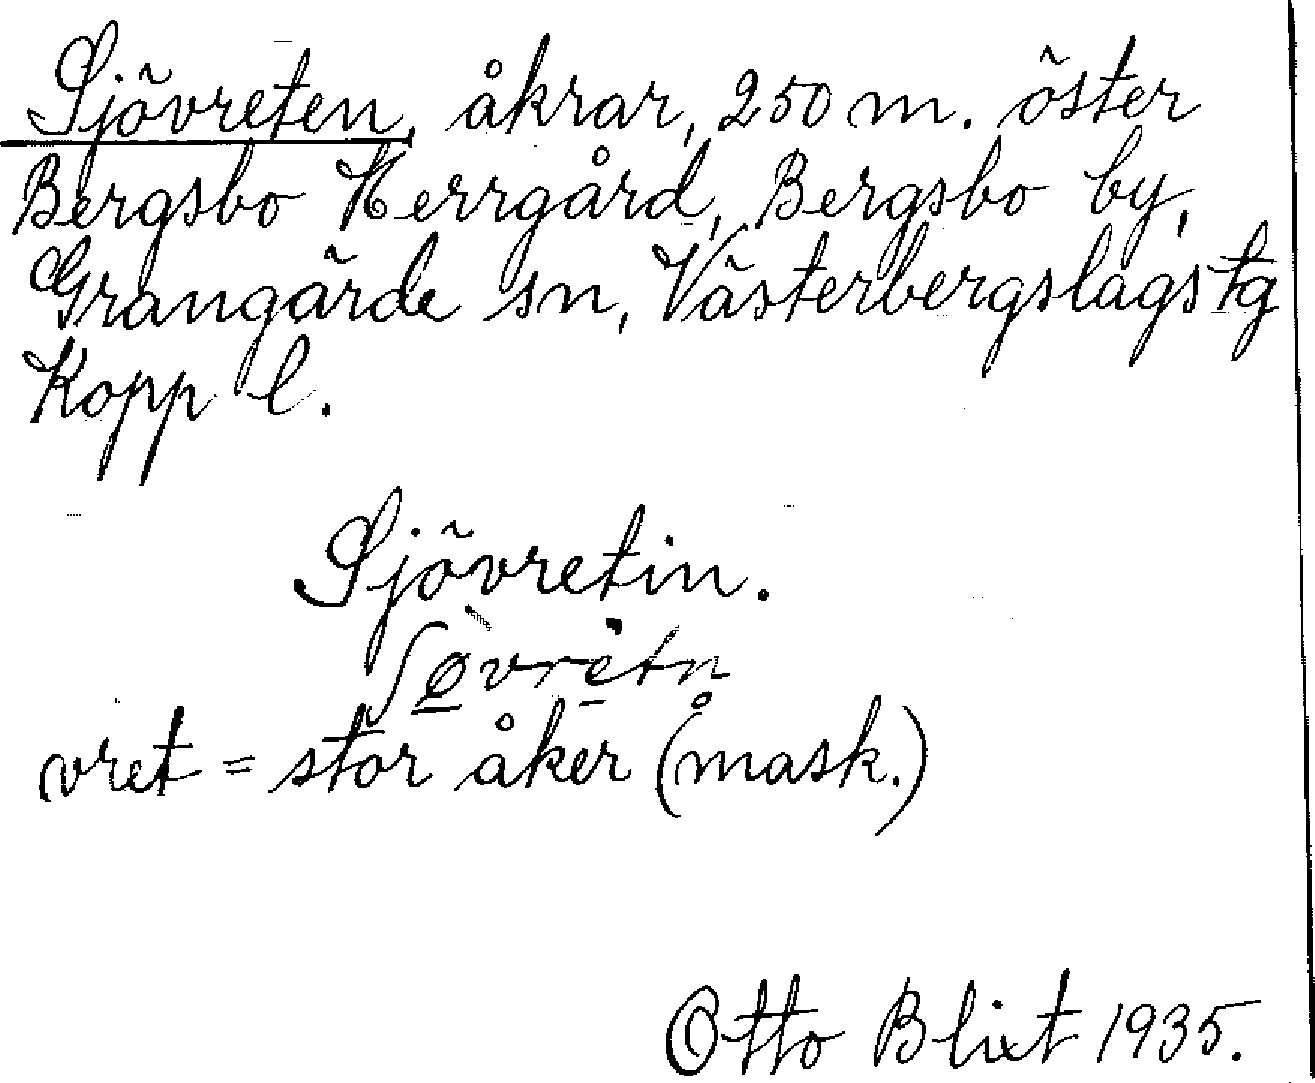 Sjövreten, åkrar, 250 m. öster
Bergsbo Herrgård, Bergsbo by,
Grangärde sn, Västerbergslags tg
Kopp l.
Sjövretin.
ʃø̀vrètn
vret = stor åker (mask.)
Otto Blixt 1935.